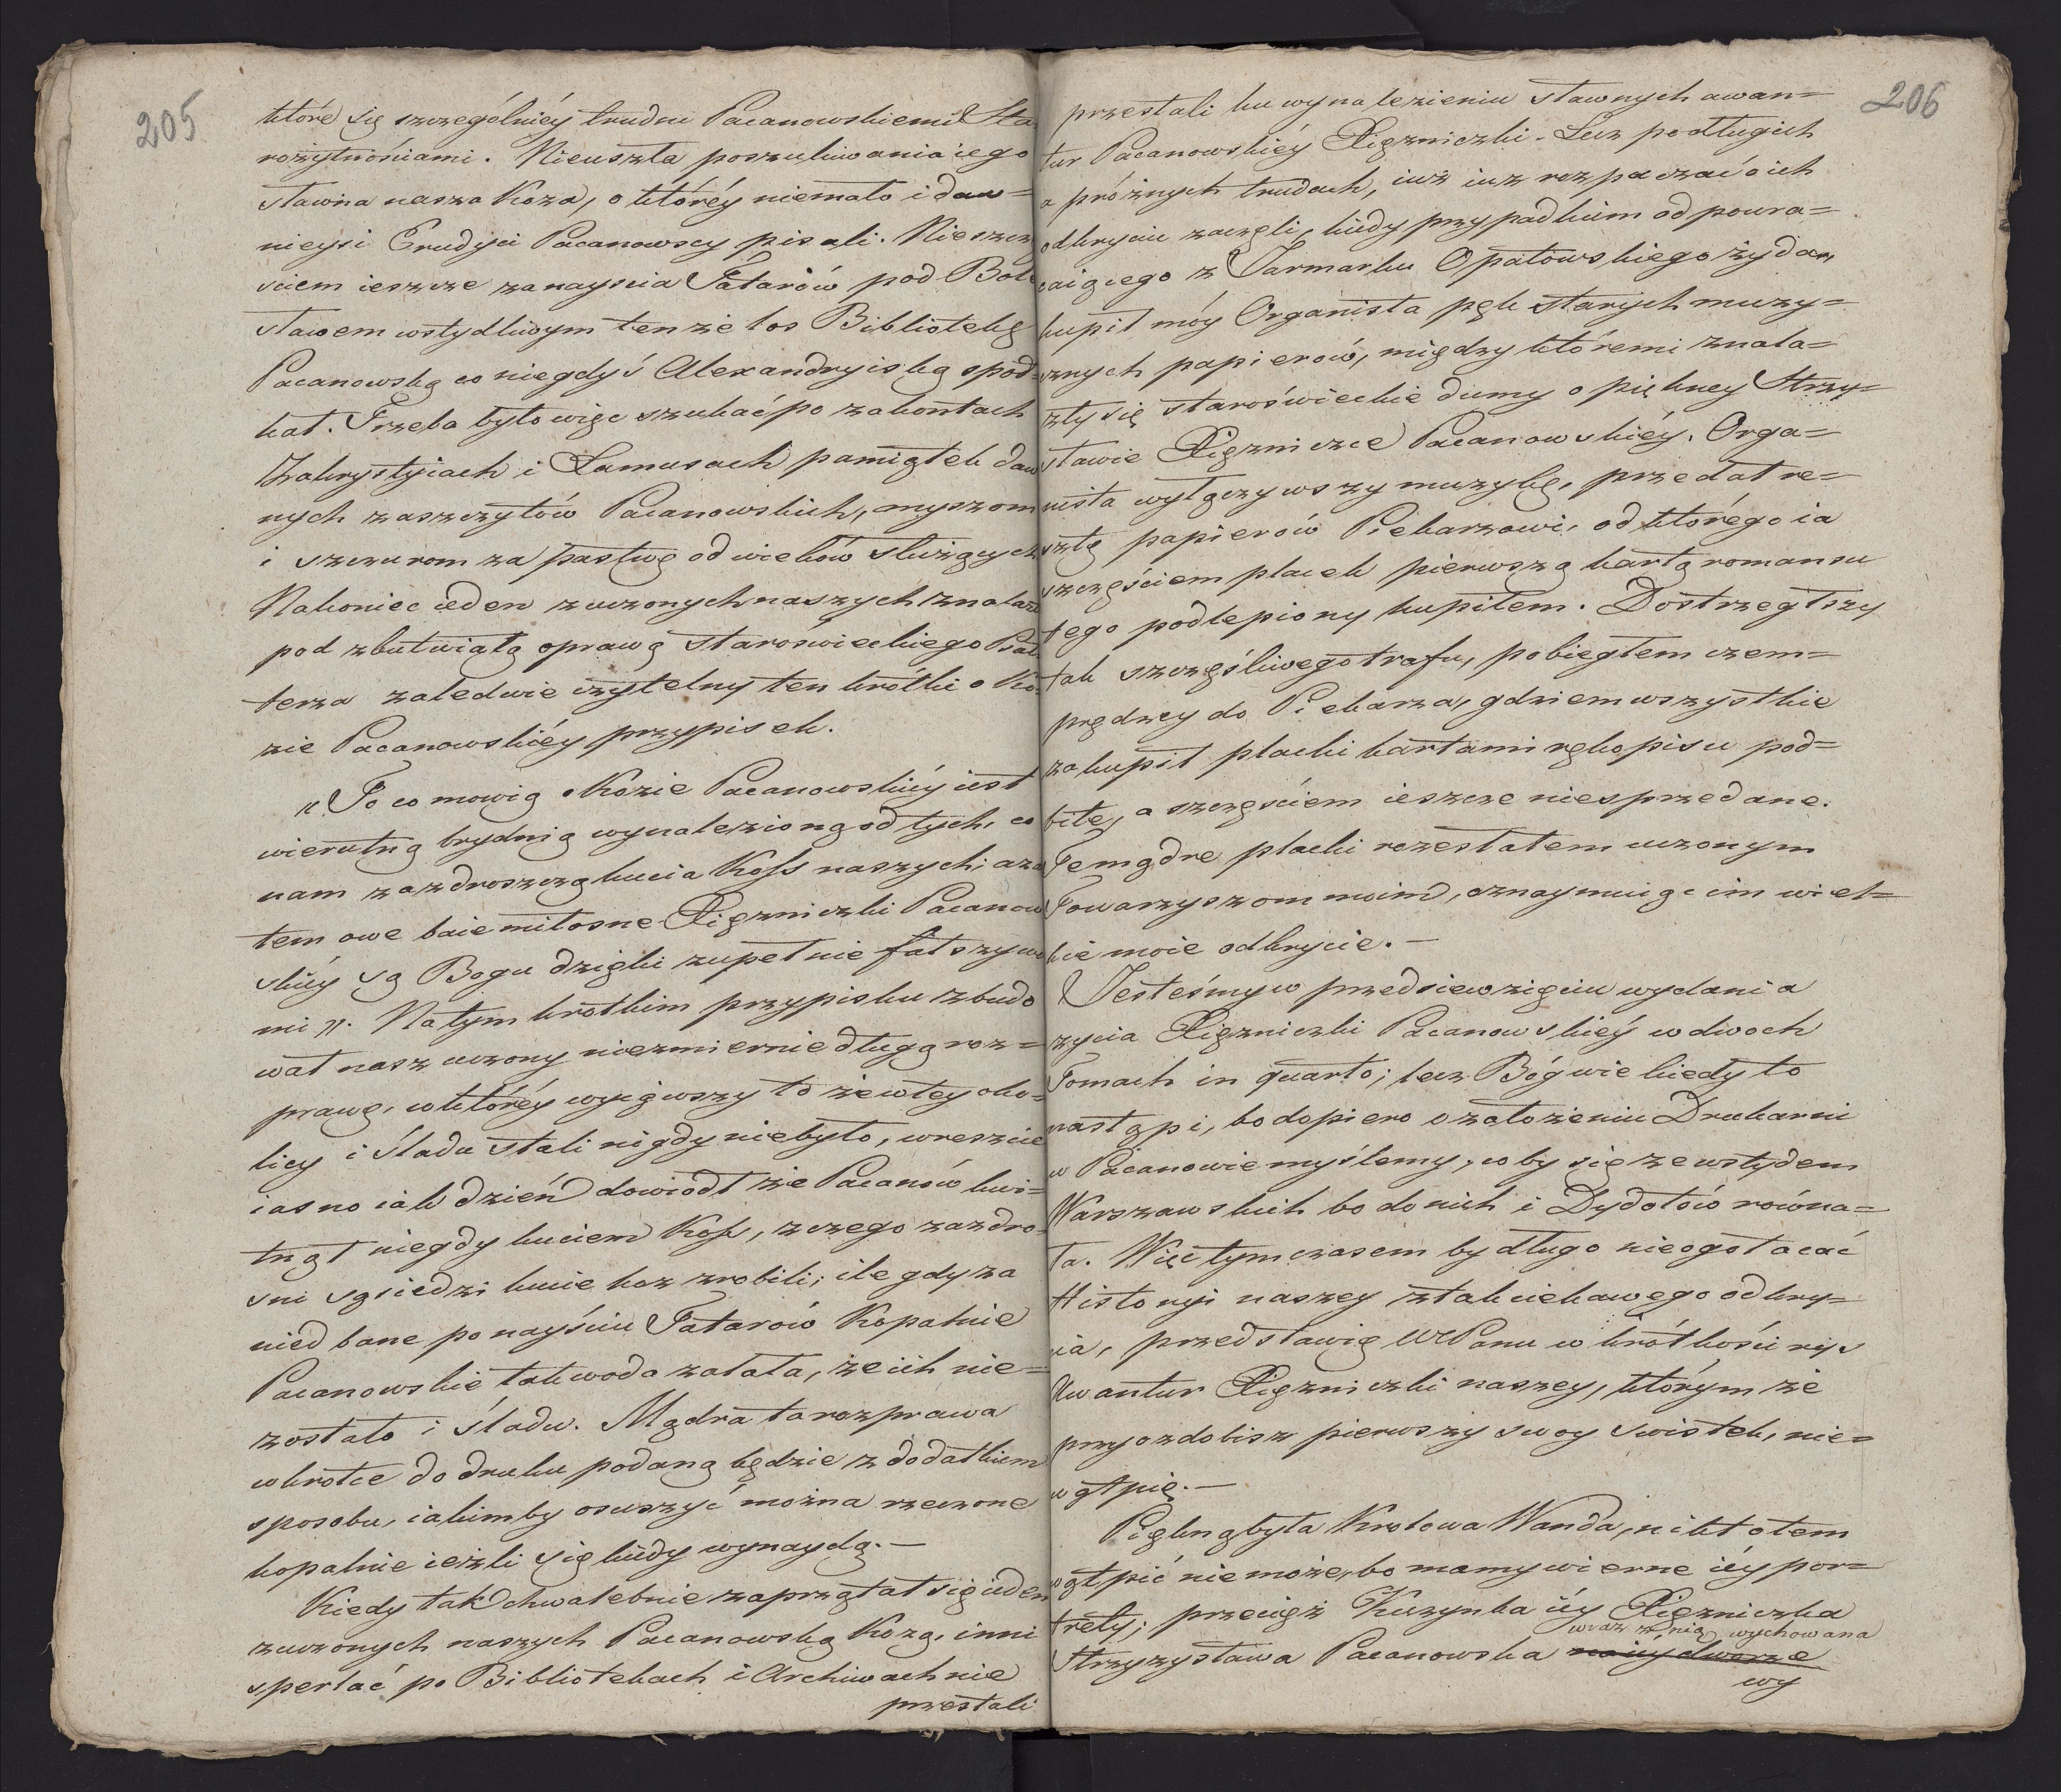 205
które się szczególniéy trudni Pacanowskiemi Sta
rożytnościami. Nieuszła poszukiwania iego
sławna nasza Koza, o któréy niemało i daw=
nieysi Erudyci Pacanowscy pisali. Nieszczę
sciem ieszcze za nayscia Tatarów pod Bole
sławem wstydliwym tenże los Bibliotekę
Pacanowską co niegdyś Alexandryiską spot=
kał. Trzeba było więc szukać po zakontach
Zakrystyiach i Lamusach pamiątek daw
nych zaszczytów Pacanowskich, myszom
i szczurom za pastwę od wieków służących
Nakoniec ieden z uczonych naszych znalazł
pod zbutwiałą oprawą staroswieckiego Psał
terza zaledwie czytelny ten krótki o Ko=
zie Pacanowskiéy przypisek.
„To co mowią o Kozie Pacanowskiéy iest
wierutną brydnią wynalezioną od tych, co
nam zazdroszczą kucia Koss naszych; aza
tem owe baie miłosne Xiężniczki Pacanow
skiéy są Bogu dzięki zupełnie fałszywe
mi”. Na tym krotkim przypisku zbudo
wał nasz uczony niezmiernie długą roz=
prawę, w któréy wyiąwszy to że w tey oko=
licy i śladu stali nigdy niebyło, wreszcie
iasno iak dzień dowiodł że Pacanów kwi=
tnął niegdy kuciem Koss, z czego zazdro=
sni sąsiedzi kucie koz zrobili; ile gdy za
niedbane po nayściu Tatarów Kopalnie
Pacanowskie tak woda zalała, że ich nie=
zostało i śladu. Mądra ta rozprawa
wkrotce do druku podaną będzie z dodatkiem
sposobu, iakimby osuszyć można rzeczone
kopalnie ieżli się kiedy wynaydą.—
Kiedy tak chwalebnie zaprzątał się ieden
z uczonych naszych Pacanowską Kozą, inni
sperłać po Bibliotekach i Archiwach nie
przestali
206
przestali ku wynalezieniu sławnych awan=
tur Pacanowskiéy Xiężniczki. Lecz po długich
a próżnych trudach, iuż iuż rozpaczać o ich
odkryciu zaczęli, kiedy przypadkiem od powra=
caiącego z Jarmarku Opatowskiego żyda,
kupił móy Organista pęk starych muzy=
cznych papierów, między któremi znala=
zły się staroświeckie dumy o piękney Strzy=
sławie Xiężniczce Pacanowskiéy. Orga=
nista wyłączywszy muzykę, przedał re=
sztę papierów Piekarzowi, od którego ia
szczęściem placek pierwszą kartą romansu
tego podlepiony kupiłem. Dostrzegłszy
tak szczęśliwego trafu, pobiegłem czem=
prędzey do Piekarza, gdziem wszystkie
zakupił placki kartami rękopisu pod=
bite, a szczęściem ieszcze niesprzedane.
Te mądre placki rozesłałem uczonym
Towarzyszom moim, oznaymuiąc im wiel=
kie moie odkrycie.—
Jesteśmy w przedsiewzięciu wydania
życia Xiężniczki Pacanowskiéy w dwoch
Tomach in quarto; lecz Bóg wie kiedy to
nastąpi, bo dopiero o założeniu Drukarni
w Pacanowie myślemy, co by się ze wstydem
Warszawskich bo do nich i Dydotów równa=
ła. Więc tymczasem by długo nieogołacać
Historyi naszey z tak ciekawego odkry=
cia, przedstawię WPanu w krótkości rys
Awantur Xiężniczki naszey, którym że
przyozdobisz pierwszy swoy swistek, nie=
wątpię.—
Piękną była Krolowa Wanda, nikt o tem
wątpić nie może, bo mamy wierne iéy por=
trety; przecięż Kuzynka iéy Xiężniczka
wraz z nią wychowana
Strzyzysława Pacanowska na iéy dworze
wy